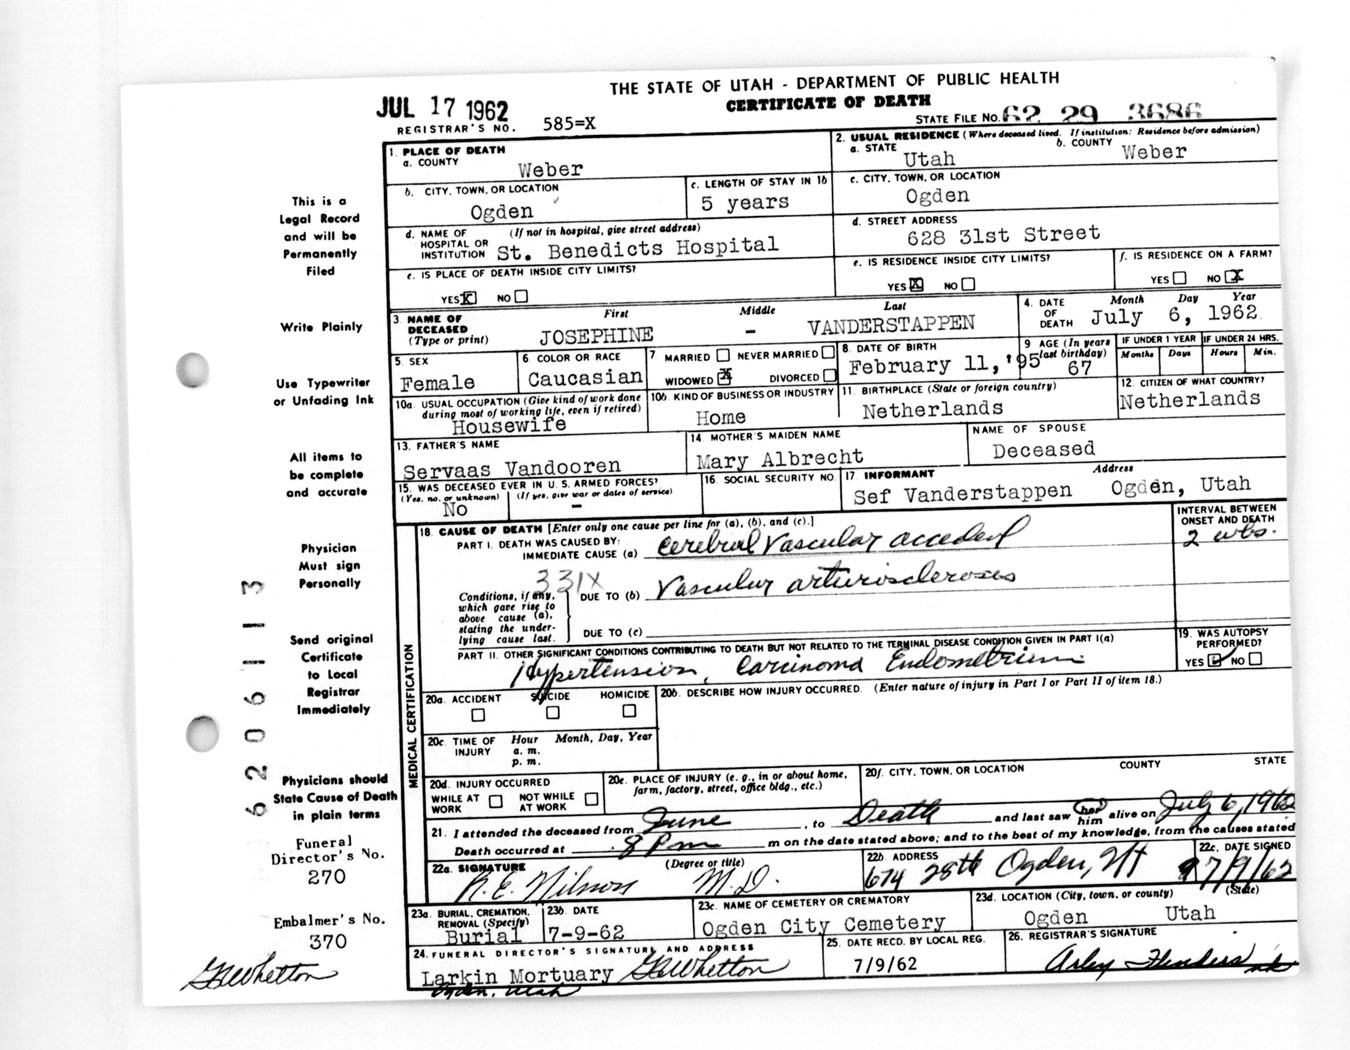 THE STATE OF UTAH - DEPARTMENT OF PUBLIC HEALTH
JUL 17 1962
CERTIFICATE OF DEATH
REGISTRAR'S NO. 585=X
STATE FILE NO. 62 29 3686
1. PLACE OF DEATH
a. COUNTY Weber
2. USUAL RESIDENCE (Where deceased lived. If institution: Residence before admission)
a. STATE Utah b. COUNTY Weber
b. CITY, TOWN, OR LOCATION Ogden
c. LENGTH OF STAY IN 1b 5 years
c. CITY, TOWN, OR LOCATION Ogden
d. NAME OF HOSPITAL OR INSTITUTION (If not in hospital, give street address) St. Benedicts Hospital
d. STREET ADDRESS 628 31st Street
e. IS PLACE OF DEATH INSIDE CITY LIMITS?
YES X NO
e. IS RESIDENCE INSIDE CITY LIMITS?
YES X NO
f. IS RESIDENCE ON A FARM?
YES NO X
3. NAME OF DECEASED (Type or print)
First Middle Last
JOSEPHINE - VANDERSTAPPEN
4. DATE OF DEATH Month Day Year
July 6, 1962
5. SEX Female
6 COLOR OR RACE Caucasian
7 MARRIED NEVER MARRIED
WIDOWED X DIVORCED
8. DATE OF BIRTH February 11,'95
9 AGE (In years last birthday) 67
IF UNDER 1 YEAR Months Days
IF UNDER 24 HRS. Hours Min.
10a. USUAL OCCUPATION (Give kind of work done during most of working life, even if retired) Housewife
10b. KIND OF BUSINESS OR INDUSTRY Home
11. BIRTHPLACE (State or foreign country) Netherlands
12. CITIZEN OF WHAT COUNTRY? Netherlands
13. FATHER'S NAME Servaas Vandooren
14. MOTHER'S MAIDEN NAME Mary Albrecht
NAME OF SPOUSE Deceased
15. WAS DECEASED EVER IN U. S. ARMED FORCES?
(Yes, no, or unknown) (If yes, give war or dates of service)
No -
16. SOCIAL SECURITY NO.
17. INFORMANT Address
Sef Vanderstappen Ogden, Utah
18. CAUSE OF DEATH [Enter only one cause per line for (a), (b), and (c).]
INTERVAL BETWEEN ONSET AND DEATH
PART I. DEATH WAS CAUSED BY:
IMMEDIATE CAUSE (a) Cerebral Vascular accedent 2 wks.
331X
Conditions, if any, which gave rise to above cause (a), stating the underlying cause last.
DUE TO (b) Vascular arturiosclerosis
DUE TO (c)
PART II. OTHER SIGNIFICANT CONDITIONS CONTRIBUTING TO DEATH BUT NOT RELATED TO THE TERMINAL DISEASE CONDITION GIVEN IN PART I(a)
Hypertension, Carcinoma Endometrium
19. WAS AUTOPSY PERFORMED?
YES NO
MEDICAL CERTIFICATION
20a. ACCIDENT SUICIDE HOMICIDE
20b. DESCRIBE HOW INJURY OCCURRED. (Enter nature of injury in Part I or Part II of item 18.)
20c. TIME OF INJURY Hour Month, Day, Year
a. m.
p. m.
20d. INJURY OCCURRED
WHILE AT WORK NOT WHILE AT WORK
20e. PLACE OF INJURY (e. g., in or about home, farm, factory, street, office bldg., etc.)
20f. CITY, TOWN, OR LOCATION COUNTY STATE
21. I attended the deceased from June , to Death and last saw her him alive on July 6, 1962
Death occurred at 8 Pm m on the date stated above; and to the best of my knowledge, from the causes stated
22a. SIGNATURE (Degree or title)
R. E. Nilsson M.D.
22b. ADDRESS 674 28th Ogden, Ut
22c. DATE SIGNED 7/9/62
23a. BURIAL, CREMATION, REMOVAL (Specify) Burial
23b. DATE 7-9-62
23c. NAME OF CEMETERY OR CREMATORY Ogden City Cemetery
23d. LOCATION (City, town, or county) (State)
Ogden Utah
24. FUNERAL DIRECTOR'S SIGNATURE AND ADDRESS
Larkin Mortuary GRWhetton
Ogden, Utah
25. DATE RECD. BY LOCAL REG. 7/9/62
26. REGISTRAR'S SIGNATURE
This is a
Legal Record
and will be
Permanently
Filed
Write Plainly
Use Typewriter
or Unfading Ink
All items to
be complete
and accurate
Physician
Must sign
Personally
Send original
Certificate
to Local
Registrar
Immediately
Physicians should
State Cause of Death
in plain terms
6206113
Funeral
Director's No.
270
Embalmer's No.
370
GRWhetton